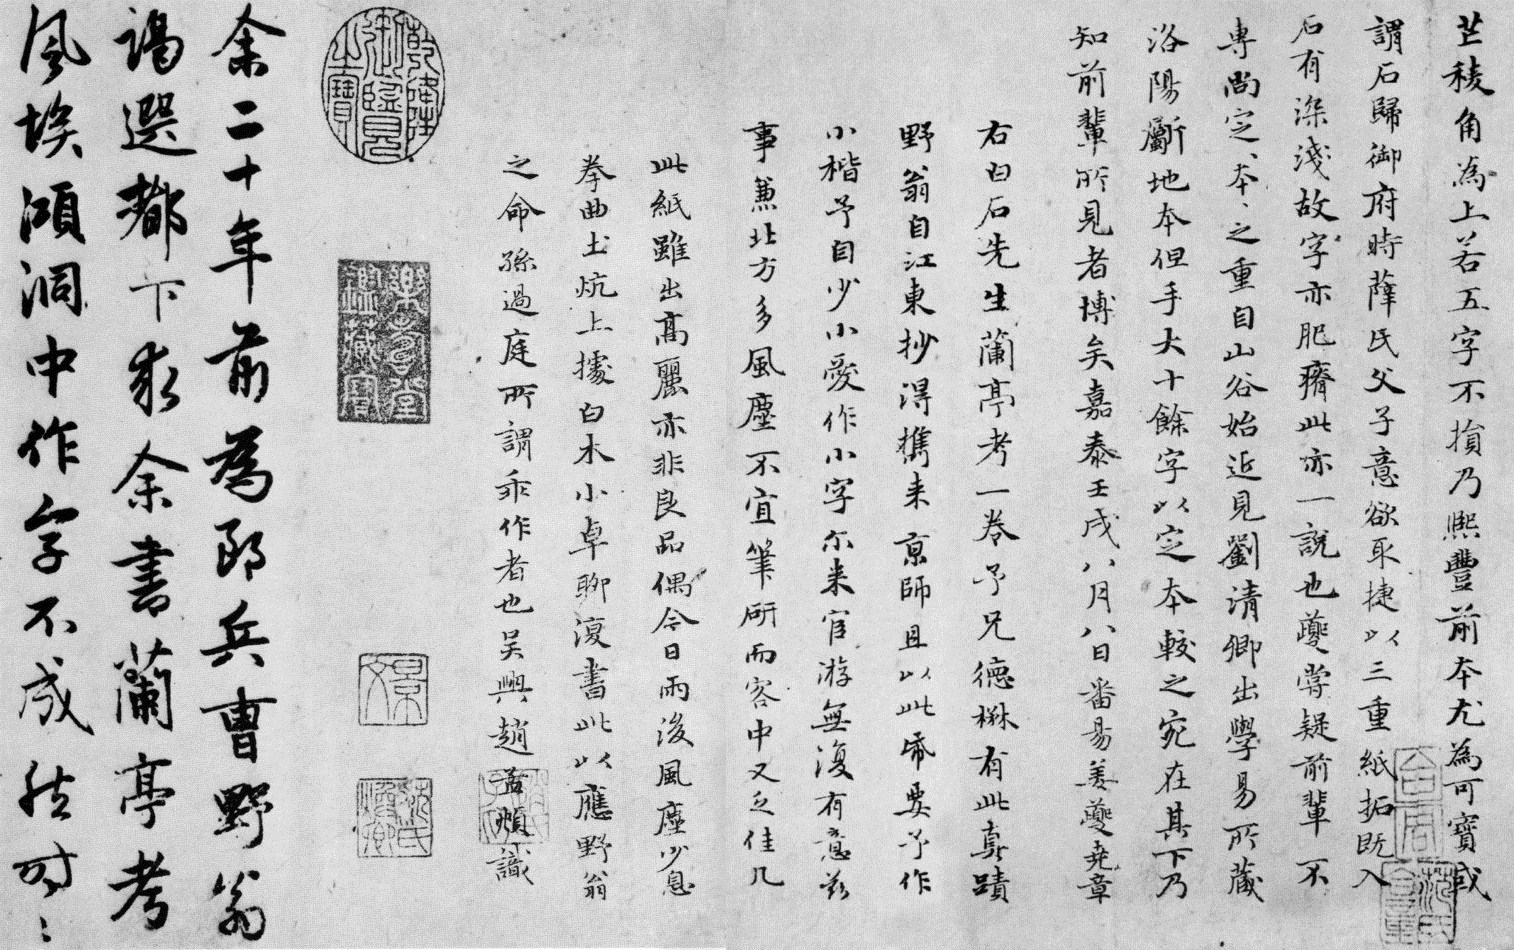 芒稜角為上若五字不損乃熙豐前本尤為可寶或
謂石歸御府時薛氏父子意欲取捷以三重紙拓既入
石有深淺故字亦肥瘠此亦一說也夔嘗疑前輩不
專尚定本本之重自山谷始近見劉清卿出學易所藏
洛陽斸地本但手大十餘字以定本較之宛在其下乃
知前輩所見者博矣嘉泰壬戌八月八日番昜姜夔堯章
右白石先生蘭亭考一卷予兄德楙有此真蹟
野翁自江東抄得攜来京師且以此㡀要予作
小楷予自少小愛作小字尔来宦游無復有意茲
事兼北方多風塵不宜筆研而客中又乏佳几
此紙雖出高麗亦非良品偶今日雨後風塵少息
拳曲土炕上據白木小卓聊復書此以應野翁
之命孫過庭所謂乖作者也吳興趙孟頫識
乾隆御覽之寶
樂善堂圖書藏寶
余二十年前為郎兵曹野翁
謁選都下求余書蘭亭考
風埃澒洞中作字不成然時〻